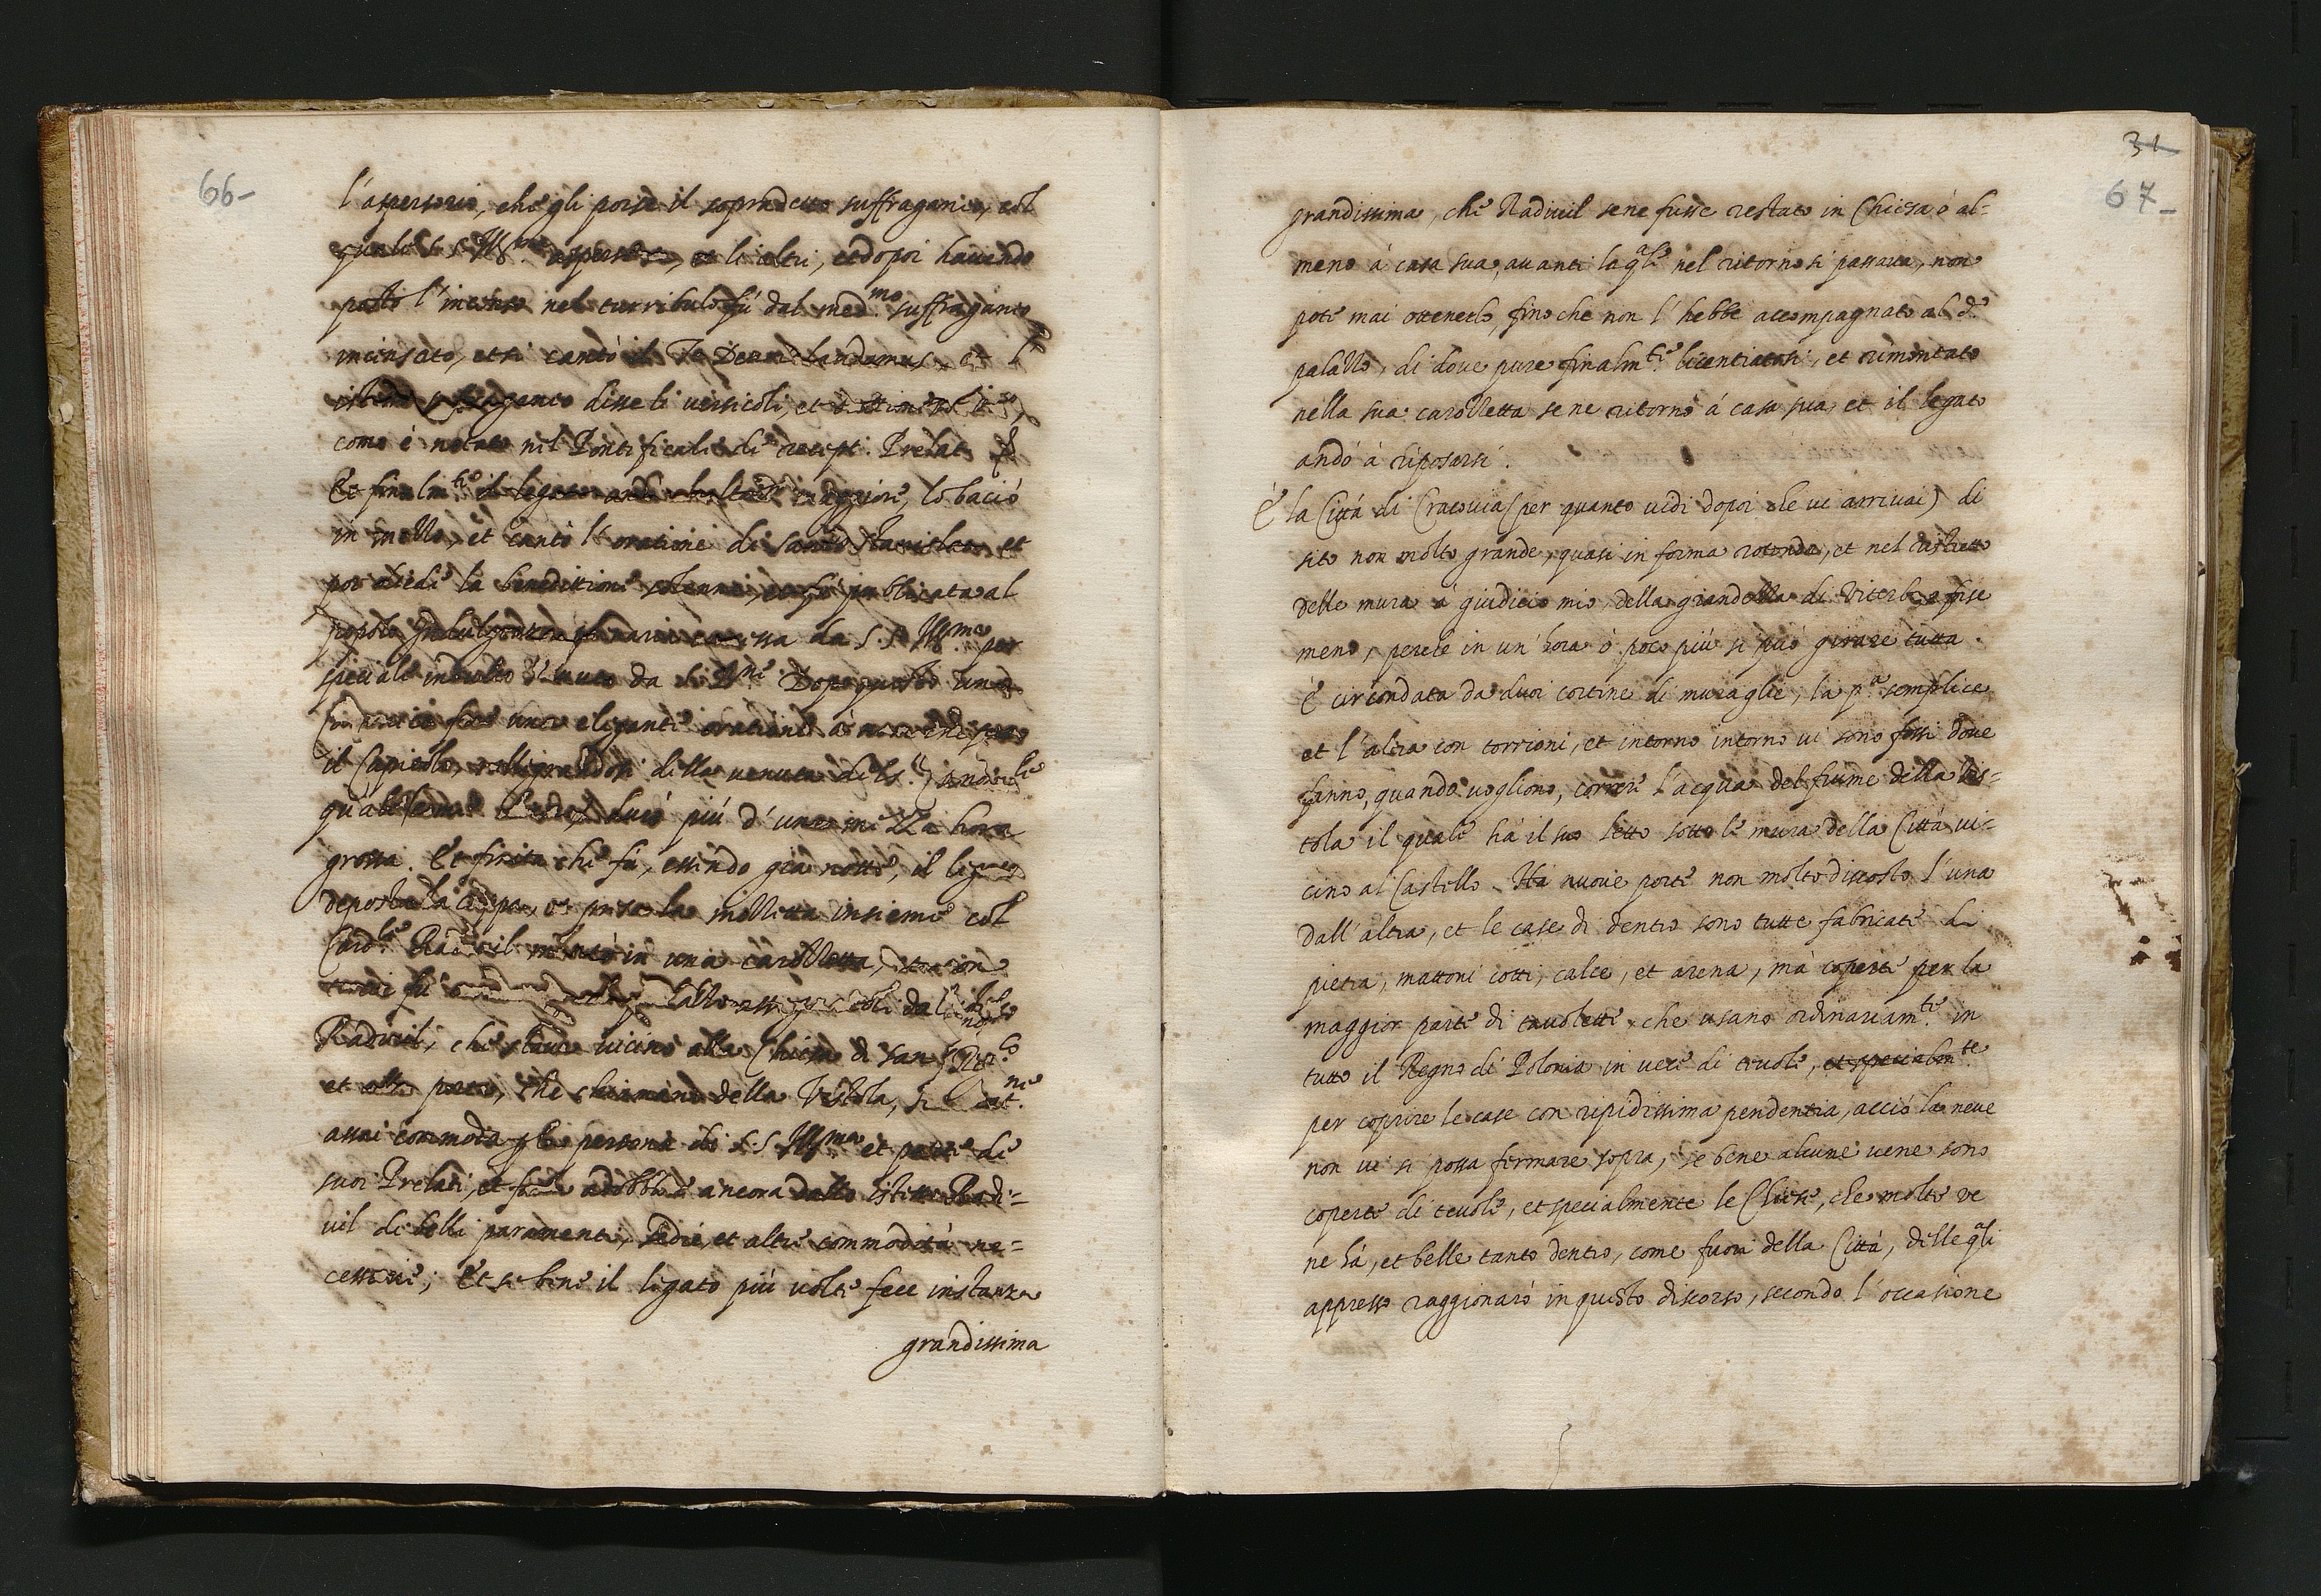 66-
l'aspersorio, che gli porse il sopradetto suffraganeo, col
quale S. S. Ill.ma asperse se, et li altri, et dopoi havendo
posto l'incenso nel turribulo fú dal med.mo suffraganeo
incensato, et si cantò il Te Deum laudamus, et l'
suffraganeo disse li versicoli, et
come è notato nel Pontificale de recept. Prelat.
Et finalm.te il legato andò all'altar maggiore, lo bació
in mezzo, et cantò l'oratione di santo Stanislao, et
poi diede la benedittione solenne, et fu publicata al
popolo Indulgenza plenaria concessa da S. S. Ill.ma per
speciale indulto da N. S.re Dopo questo uno
Canonico fece una elegante oratione à nome di tutto
il Capitolo, rallegrandosi della venuta di
duró piú d'una mezza hora
grossa. Et finita che fú, essendo giá notte, il legato
deposta la cappa, et presa la mozzetta insieme col
Card.le Radivil montó in una carozzetta, et con
fú dal
Radivil, che stava vicino alla Chiesa di san
et alla porta, che chiamano della Vistola,
assai commoda per la persona di S. S. Ill.ma et parte de
suoi Prelati, et fu adobbata ancora dallo istesso Radi=
vil di belli paramenti, sedie, et altre commoditá ne=
cessarie; Et se bene il legato piú volte fece instanza
grandissima
31
67-
grandissima, che Radivil se ne fusse restato in Chiesa ó al=
meno á casa sua, avanti la q.le nel ritorno si passava, non
poté mai ottenerlo, fino che non l'hebbe accompagnato al d.o
palazzo, di dove pure finalm.te licentiatosi, et rimontato
nella sua carozzetta se ne ritornò á casa sua, et il legato
andó à riposarsi.
É la Cittá di Cracovia (per quanto vidi dopoi che vi arrivai) di
sito non molto grande, quasi in forma rotonda, et nel ristretto
delle mura á giudicio mio, della grandezza di Viterbo, e forse
meno, perche in un'hora ó poco piú si puó girare tutta.
É circondata da duoi cortine di muraglie, la p.a semplice
et l'altra con torrioni, et intorno intorno vi sono fossi dove
fanno, quando vogliono, correre l'acqua del fiume della Vis=
tola il quale há il suo letto sotto le mura della Cittá vi=
cino al Castello. Há nuove porte non molto discosto l'una
dall'altra, et le case di dentro sono tutte fabricate di
pietra, mattoni cotti, calce, et arena, má coperte per la
maggior parte di tavolette, che usano ordinariam.te in
tutto il Regno di Polonia in vece di tevole, et specialm.te
per coprire le case con ripidissima pendentia, acció la neve
non vi si possa fermare sopra, se bene alcune vene sono
coperte di tevole, et specialmente le Chiese, che molte ve
ne há, et belle tanto dentro, come fuori della Cittá, delle q.li
appresso raggionaró in questo discorso, secondo l'occasione